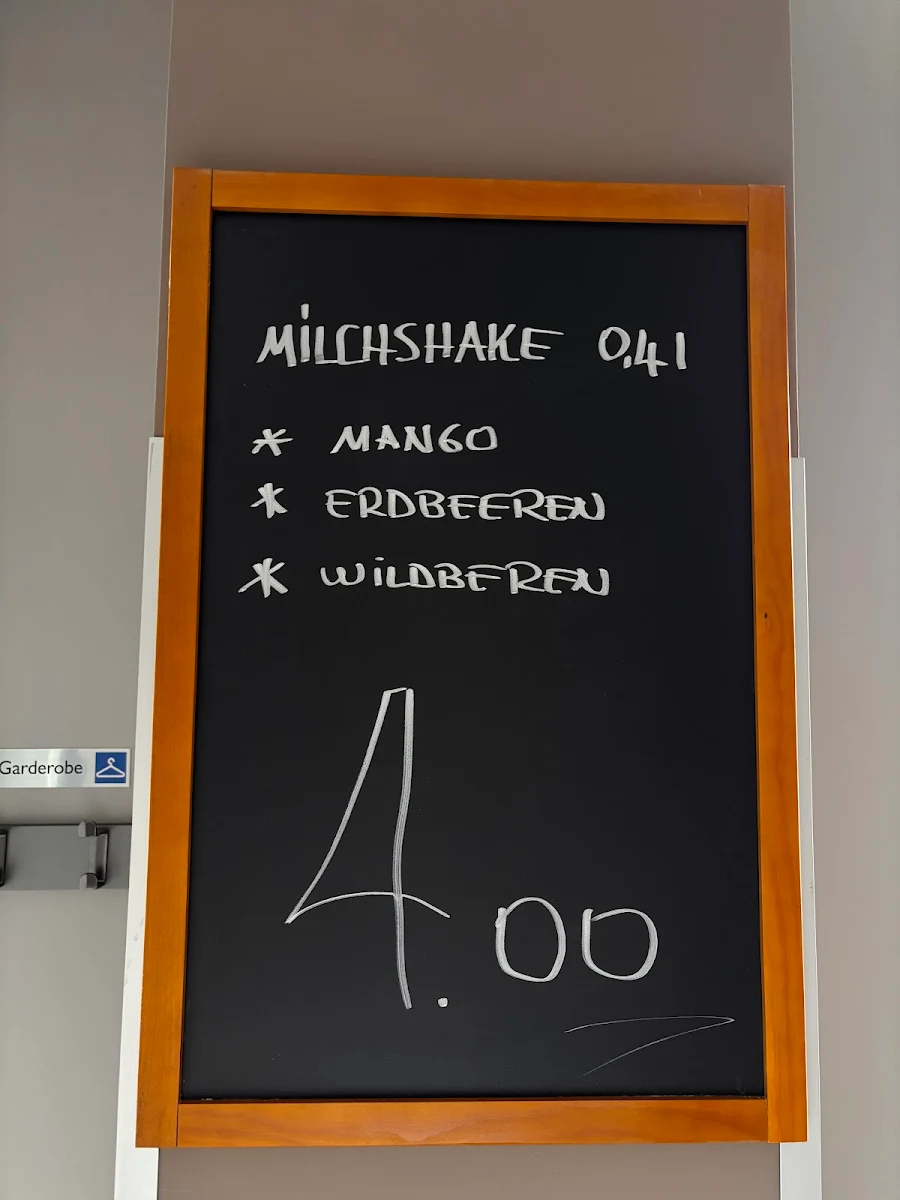 MILCHSHAKE 0,4l
* MANGO
* ERDBEEREN
* WILDBEREN
4.00
Garderobe